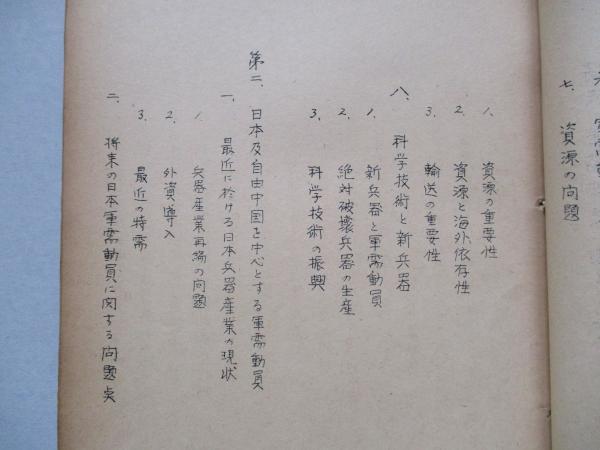 七、資源の問題
1、資源の重要性
2、資源と海外依存性
3、輸送の重要性
八、科学技術と新兵器
1、新兵器と軍需動員
2、絶対破壊兵器の生産
3、科学技術の振興
第二、日本及自由中国を中心とする軍需動員
一、最近に於ける日本兵器産業の現状
1、兵器産業再編の問題
2、外資導入
3、最近の特需
二、将来の日本軍需動員に関する問題点